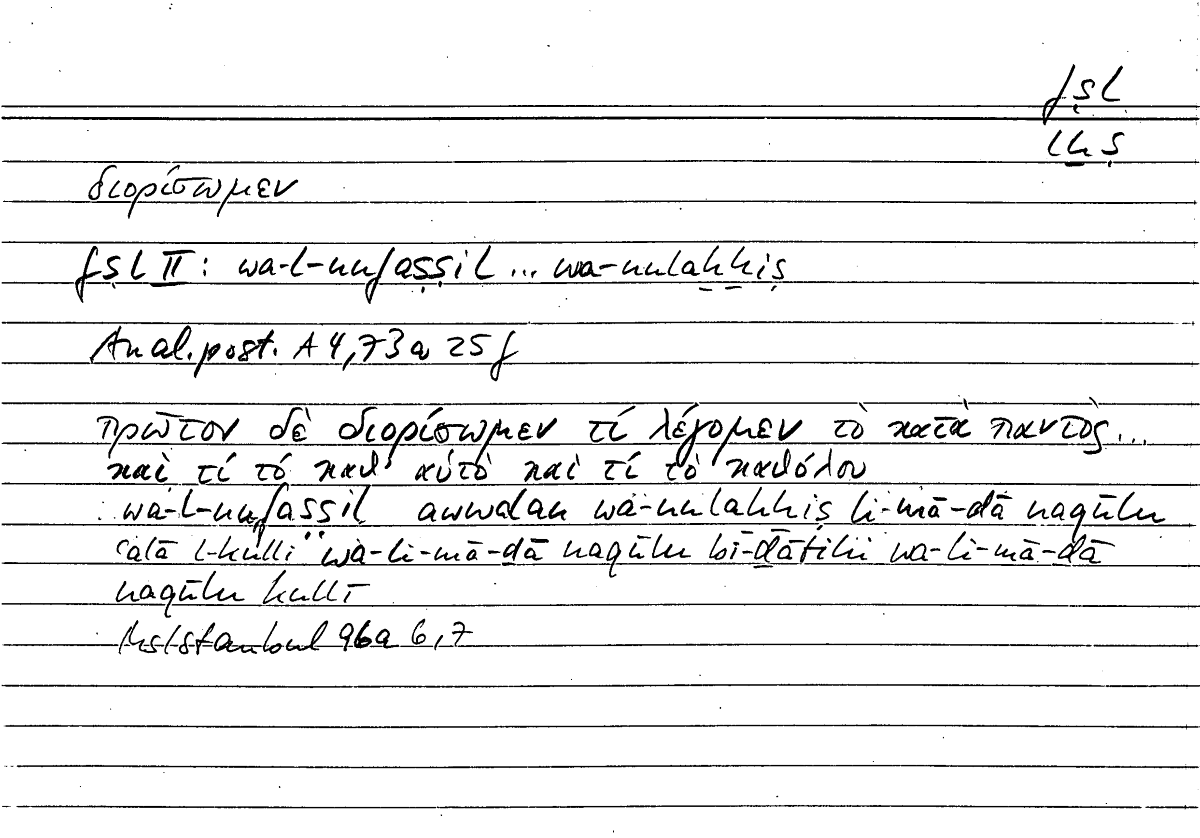 fṣl
lḫṣ
διορίσωμεν
fṣl II: wa-l-nufaṣṣil ... wa-nulaḫḫiṣ
Anal.post. A 4,73a 25 f
πρῶτον δὲ διορίσωμεν τί λέγομεν τὸ κατὰ παντὸς...
καὶ τί τὸ καθ' αὑτὸ καὶ τί τὸ καθόλου
wa-l-nufaṣṣil awwalan wa-nulaḫḫiṣ li-mā-ḏā naqūlu
ʿalā l-kulli wa-li-mā-ḏā naqūlu bi-ḏātihi wa-li-mā-ḏā
naqūlu kullī
Hs Istanbul 96a 6,7